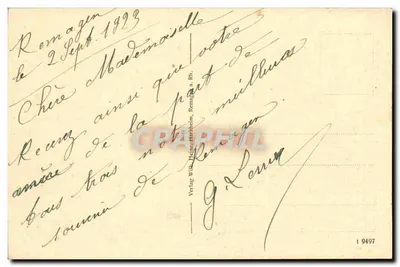 Remagen
le 2 Sept. 1923
Chère Mademoiselle
Recevez ainsi que votre
de la part de
tous trois notre meilleur
souvenir de Remagen.
G.
Verlag Wilh. Remagen a. Rh.
CPARAMA
1 9497